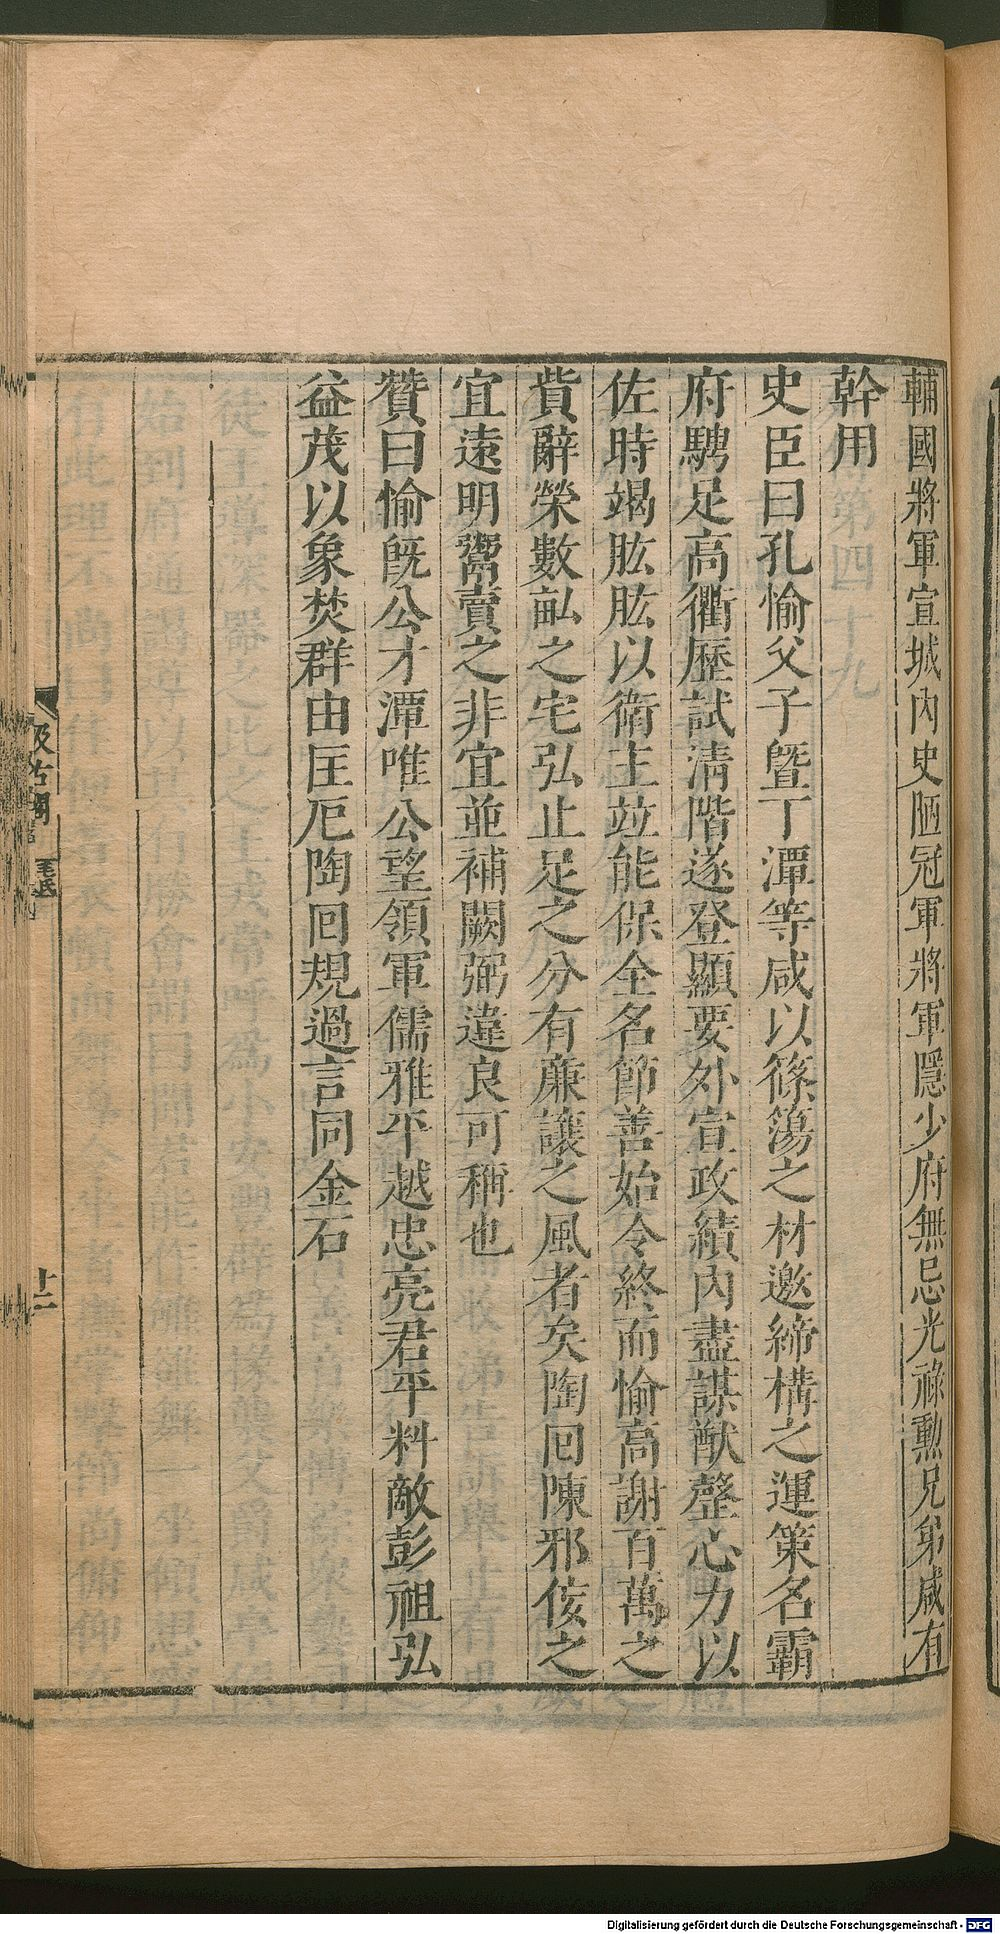 輔國將軍宣城內史陋冠軍將軍隱少府無忌光祿勳兄弟咸有
幹用
史臣曰孔愉父子曁丁潭等咸以篠簜之材邀締構之運策名霸
府騁足高衢歷試清階遂登顯要外宣政績內盡謀猷罄心力以
佐時竭肱肱以衛主竝能保全名節善始令終而愉高謝百萬之
貲辭榮數畝之宅弘止足之分有廉讓之風者矣陶回陳邪佞之
宜遠明鬻賣之非宜並補闕弼違良可稱也
贊曰愉旣公才潭唯公望領軍儒雅平越忠亮君平料敵彭祖弘
益茂以象焚群由匡厄陶回規過言同金石
汲古閣
毛氏
十二
Digitalisierung gefördert durch die Deutsche Forschungsgemeinschaft - DFG